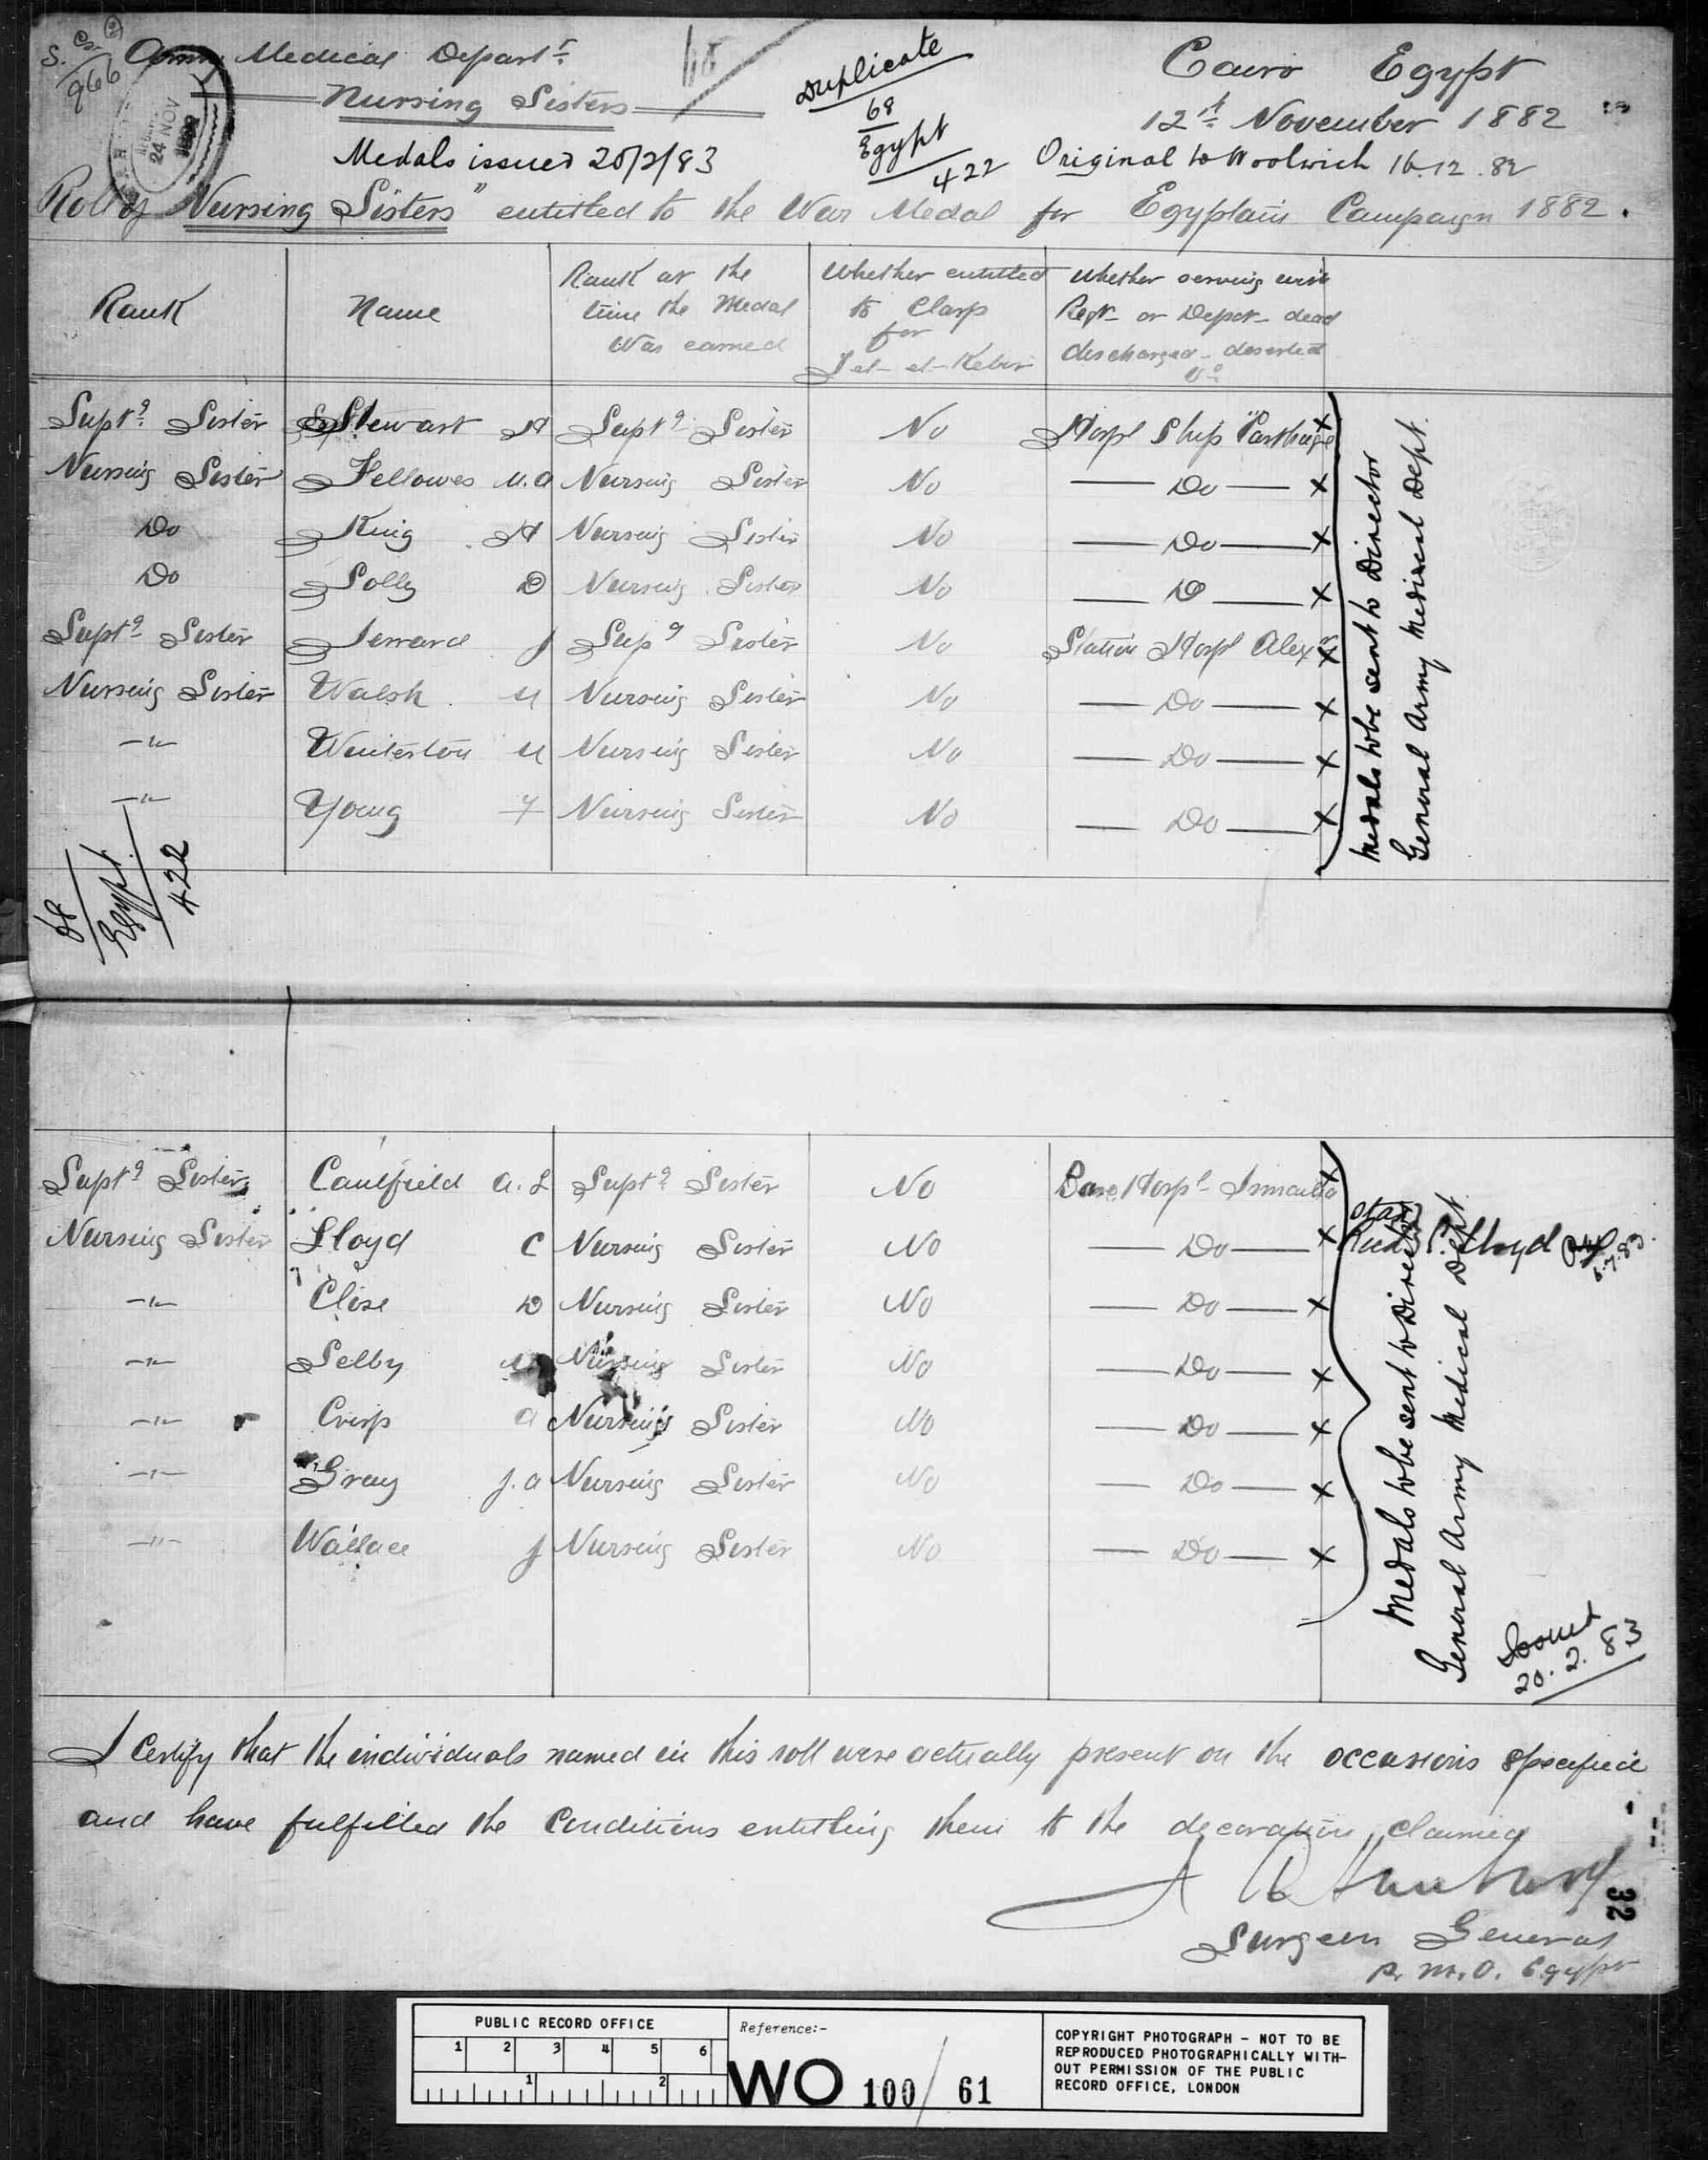 Army Medical Depart.t
Nursing Sisters
Medals issued 20/2/83
Duplicate
68
Egypt
422
Cairo Egypt
12th November 1882
Original to Woolwich 16.12.82
S.
966
24 NOV
Roll of "Nursing Sisters" entitled to the War Medal for Egyptain Campaign 1882.
Rank Name Rank at the time the Medal was earned Whether entitled to Clasp for Tel-el-Kebir Whether serving with Regt or Depot- dead discharged - deserted &c
Supt.g Sister Stewart H Supt.g Sister No Hospl Ship "Carthage"
Nursing Sister Fellowes M.A Nursing Sister No Do x
Do King H Nursing Sister No Do x
Do Solly D Nursing Sister No Do x
Supt.g Sister Jerrard J Sup.g Sister No Station Hospl Alex x
Nursing Sister Walsh M Nursing Sister No Do x
-"- Winterton M Nursing Sister No Do x
-"- Young Y Nursing Sister No Do x
Medals to be sent to Director
General Army Medical Dept.
68
Egypt
422
Supt.g Sister Caulfield A.L Supt.g Sister No Base Hospl- Ismailia
Nursing Sister Lloyd C Nursing Sister No Do x
C. Lloyd
6.7.83.
-"- Close D Nursing Sister No Do x
-"- Selby Nursing Sister No Do x
-"- Crisp A Nursing Sister No Do x
-"- Gray J.A Nursing Sister No Do x
-"- Wallace J Nursing Sister No Do x
Medals to be sent to Director
General Army Medical Dept.
Issued
20.2.83
I certify that the individuals named in this roll were actually present on the occasions specified
and have fulfilled the conditions entitling them to the decoration claimed
Surgeon General
P.M.O. Egypt
32
PUBLIC RECORD OFFICE
1 2 3 4 5 6
1 2
Reference:-
WO 100/61
COPYRIGHT PHOTOGRAPH - NOT TO BE
REPRODUCED PHOTOGRAPHICALLY WITH-
OUT PERMISSION OF THE PUBLIC
RECORD OFFICE, LONDON